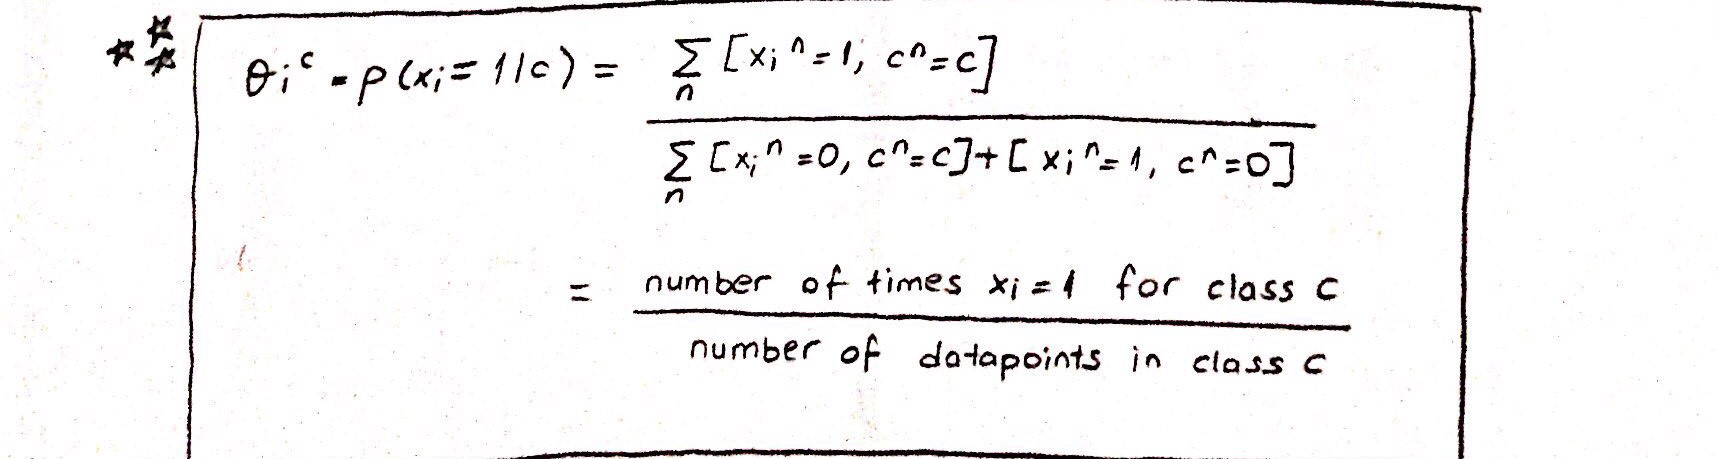 θᵢᶜ = p(xᵢ = 1|c) = Σₙ [xᵢⁿ = 1, cⁿ = c]
Σₙ [xᵢⁿ = 0, cⁿ = c] + [xᵢⁿ = 1, cⁿ = 0]
= number of times xᵢ = 1 for class c
number of datapoints in class c